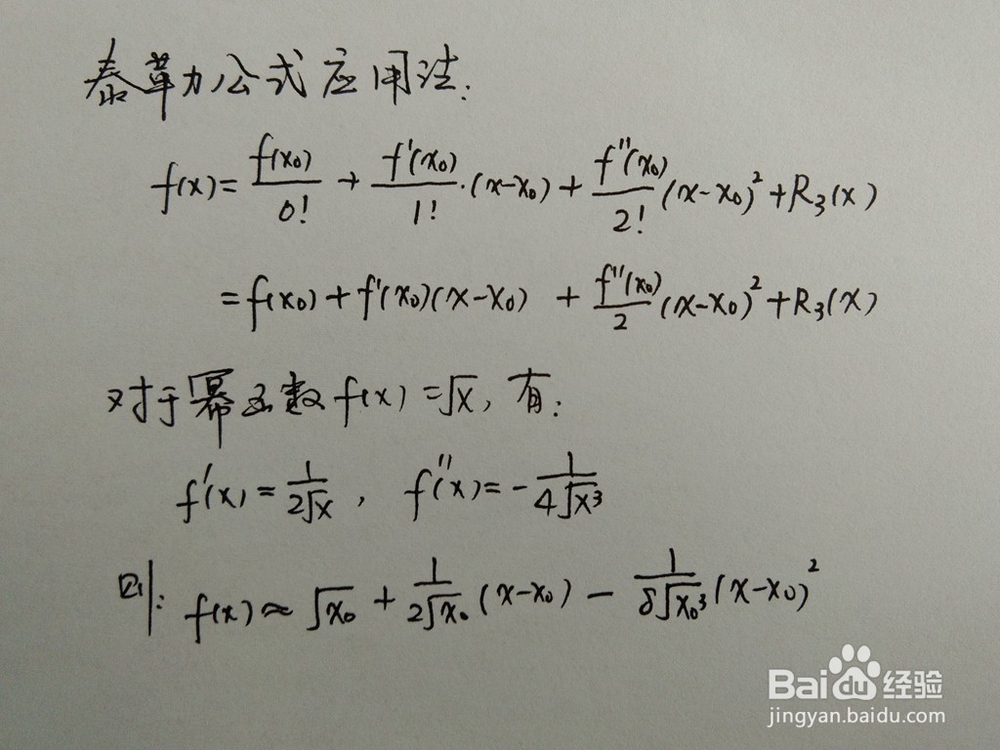 泰勒公式应用法:
f(x)=f(x₀)/0! + f'(x₀)/1!·(x-x₀)+f''(x₀)/2!(x-x₀)²+R₃(x)
=f(x₀)+f'(x₀)(x-x₀) + f''(x₀)/2(x-x₀)²+R₃(x)
对于幂函数f(x)=√x, 有:
f'(x)=1/2√x, f''(x)=-1/4√x³
则: f(x)≈√x₀+1/2√x₀(x-x₀)-1/8√x₀³(x-x₀)²
Baidu经验
jingyan.baidu.com